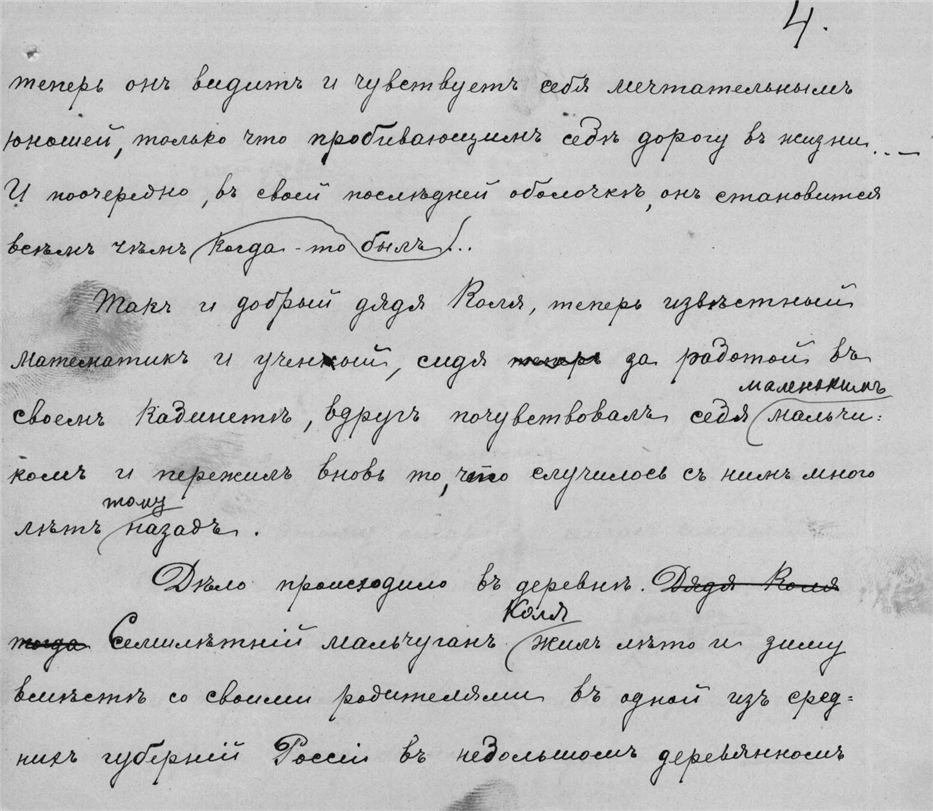 4.
теперь онъ видитъ и чувствуетъ себя мечтательнымъ
юношей, только что пробивающимъ себѣ дорогу въ жизни...
И поочередно, въ своей послѣдней оболочкѣ, онъ становится
всѣмъ чѣмъ когда-то былъ...
Такъ и добрый дядя Коля, теперь извѣстный
математикъ и ученый, сидя теперь за работой въ
маленькимъ
своемъ кабинетѣ, вдругъ почувствовалъ себя мальчи=
комъ и пережилъ вновь то, что случилось съ нимъ много
тому
лѣтъ назадъ.
Дѣло происходило въ деревнѣ. Дядя Коля
Коля
тогда Семилѣтній мальчуганъ жилъ лѣто и зиму
вмѣстѣ со своими родителями въ одной изъ сред=
нихъ губерній Россіи въ небольшомъ деревянномъ